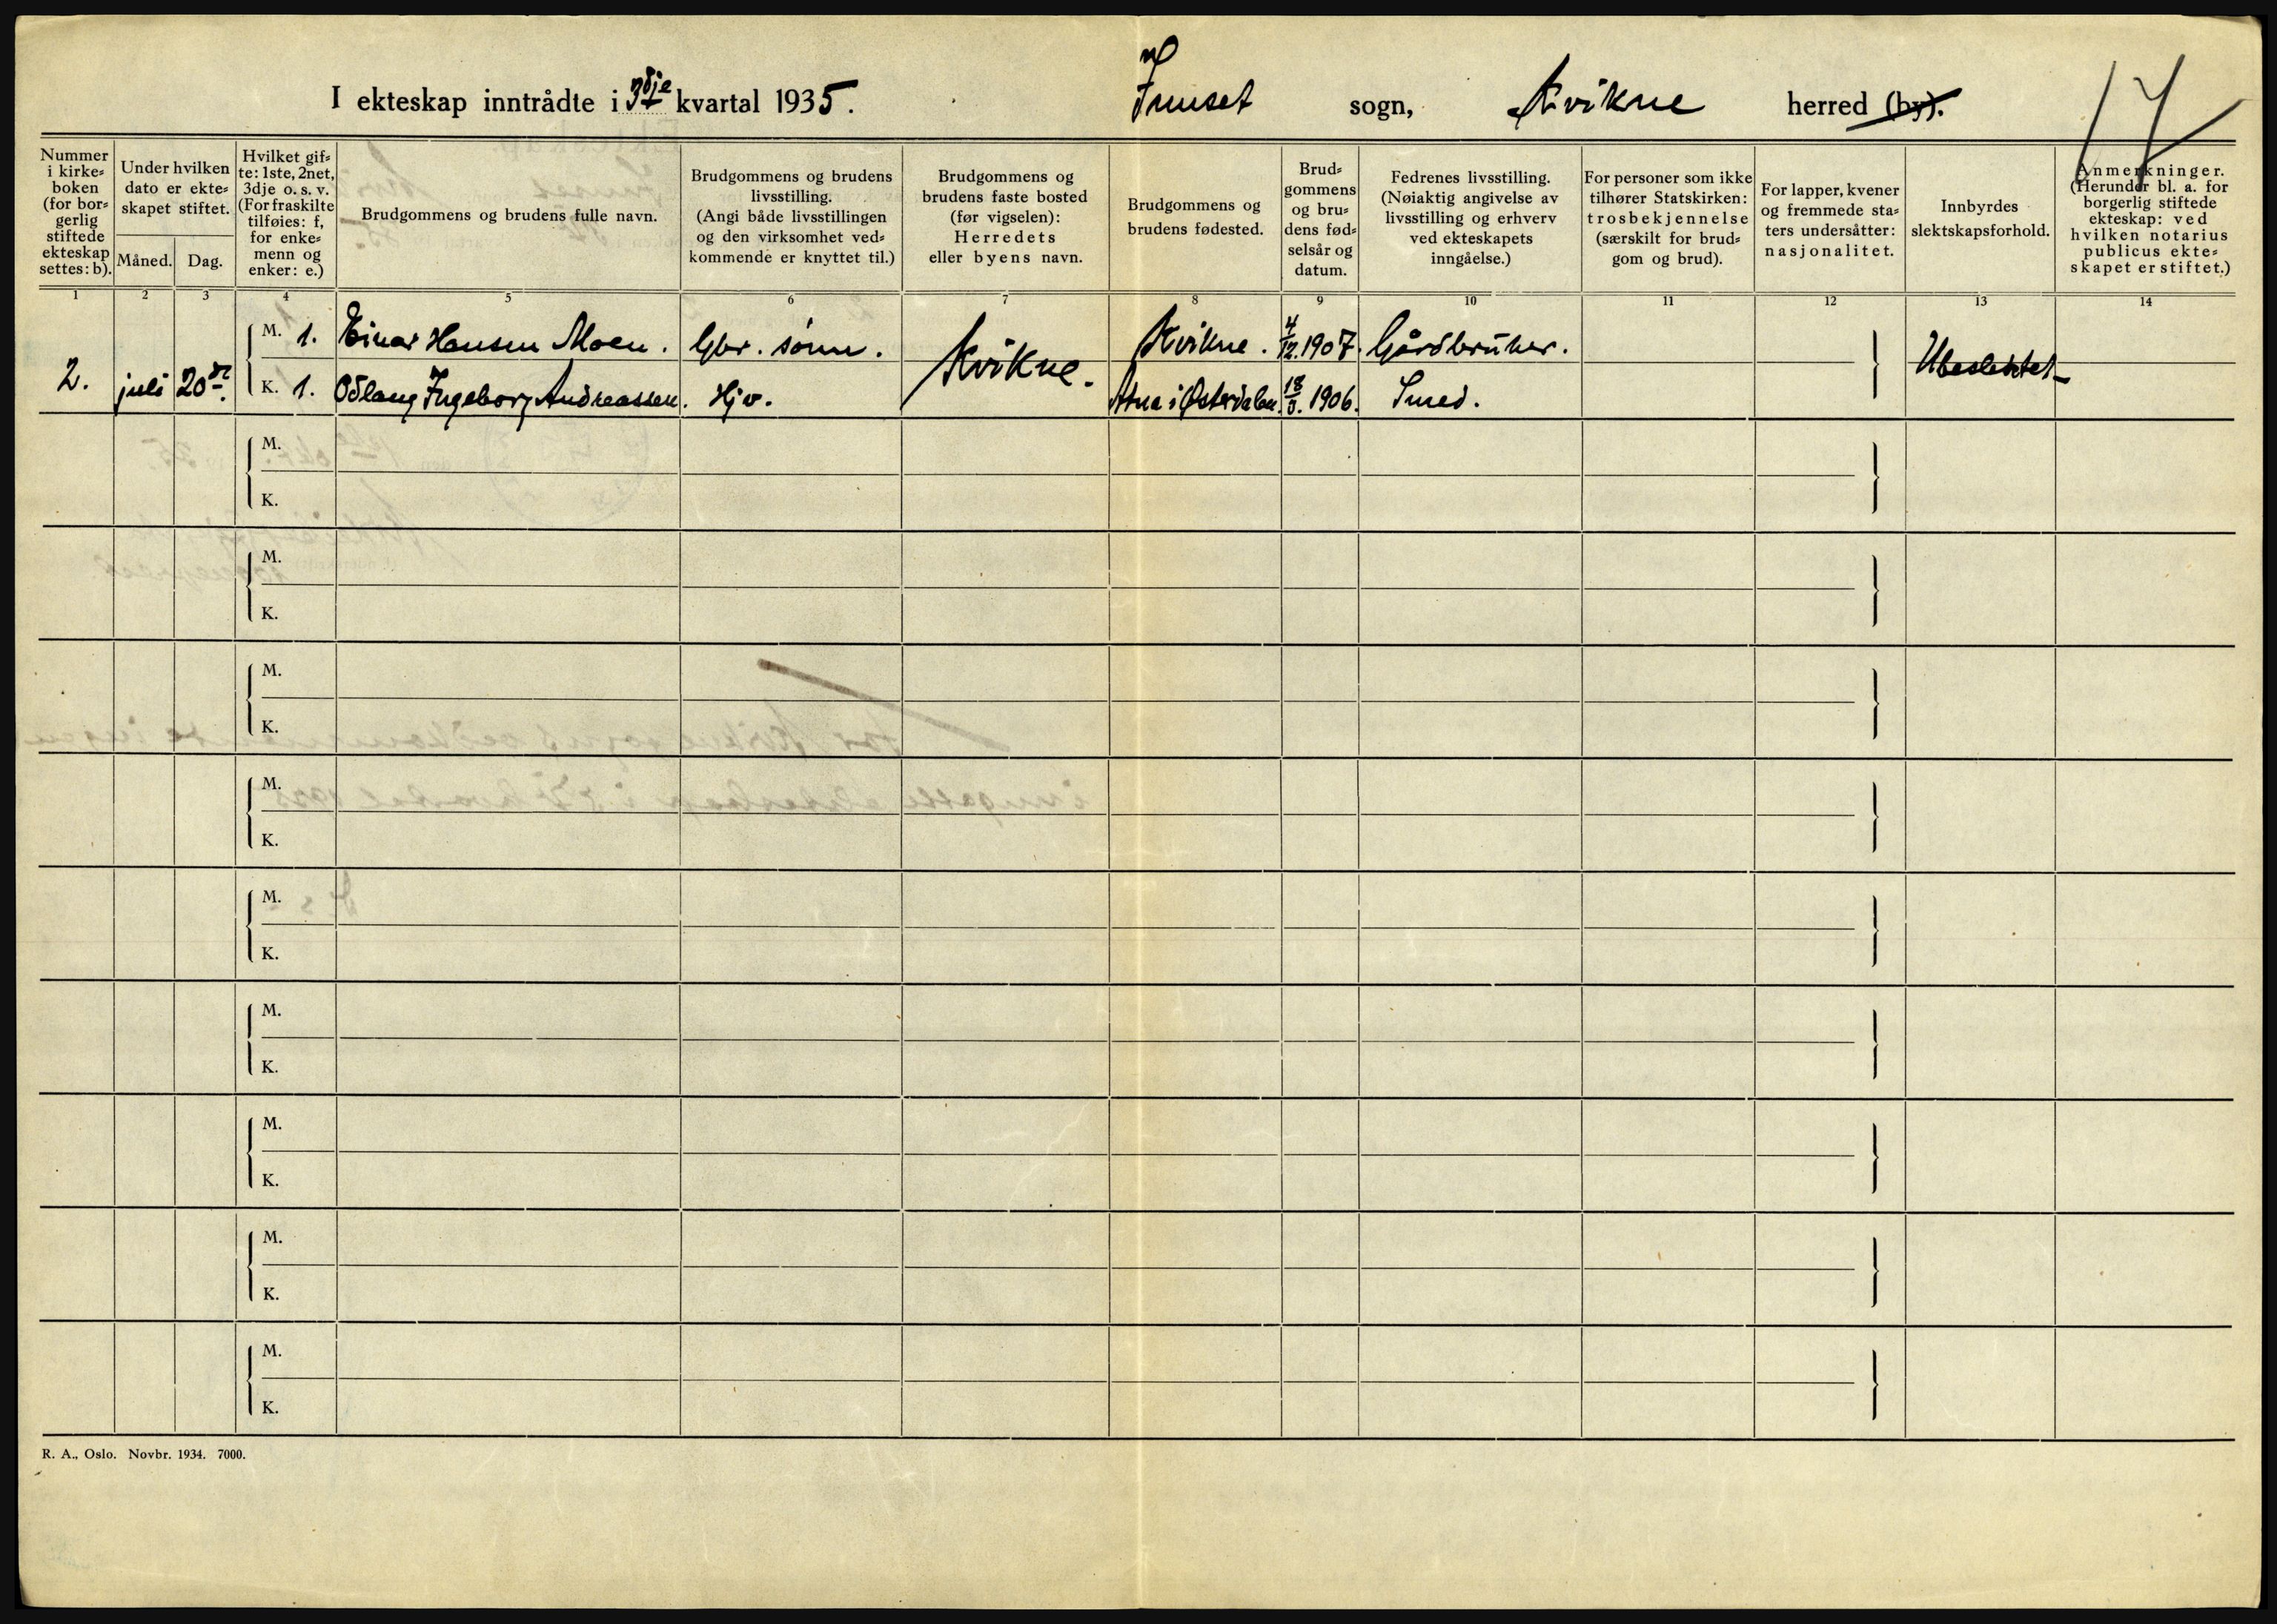 I ekteskap inntrådte i 3dje kvartal 1935. Innset sogn, Kvikne herred (by). 17
Nummer i kirke=boken (for bor=gerlig stiftede ekteskap settes: b).
Under hvilken dato er ekte=skapet stiftet.
Måned. Dag.
Hvilket gif=te: 1ste, 2net, 3dje o. s. v. (For fraskilte tilføies: f, for enke=menn og enker: e.)
Brudgommens og brudens fulle navn.
Brudgommens og brudens livsstilling. (Angi både livsstillingen og den virksomhet ved=kommende er knyttet til.)
Brudgommens og brudens faste bosted (før vigselen): Herredets eller byens navn.
Brudgommens og brudens fødested.
Brud=gommens og bru=dens fød=selsår og datum.
Fedrenes livsstilling. (Nøiaktig angivelse av livsstilling og erhverv ved ekteskapets inngåelse.)
For personer som ikke tilhører Statskirken: trosbekjennelse (særskilt for brud=gom og brud).
For lapper, kvener og fremmede sta=ters undersåtter: nasjonalitet.
Innbyrdes slektskapsforhold.
Anmerkninger. (Herunder bl. a. for borgerlig stiftede ekteskap: ved hvilken notarius publicus ekte=skapet er stiftet.)
1 2 3 4 5 6 7 8 9 10 11 12 13 14
M. 1. Einar Hansen Moen. Gbr. sønn. Kvikne. 4/12.1907. Gårdbruker.
2. juli 20de Kvikne. Ubeslektet
K. 1. Odlaug Ingeborg Andreassen. Hjv. Atna i Østerdalen. 18/5. 1906. Smed.
M.
K.
M.
K.
M.
K.
M.
K.
M.
K.
M.
K.
M.
K.
M.
K.
M.
K.
R. A., Oslo. Novbr. 1934. 7000.